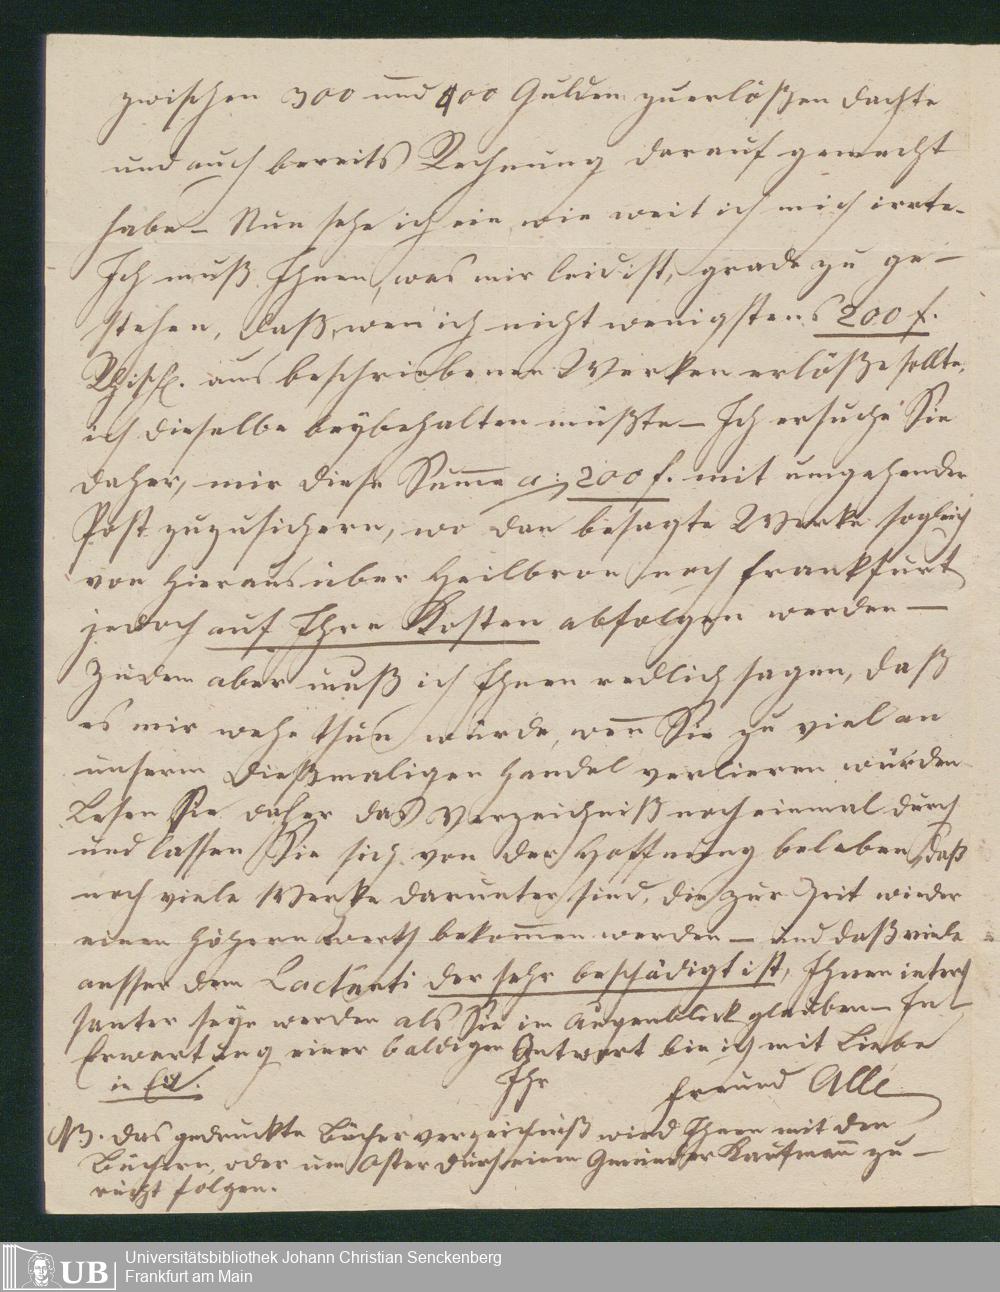 zwischen 300 und 400 Gulden zuerlößen dachte
und auch bereits Rechnung darauf gemacht
habe – Nun sehe ich ein, wie weit ich mich irrte.
Ich muß Ihnen, was mir leid ist, grade zu ge–
stehen, daß, wen ich nicht wenigstens 200 f.
aus beschriebenen Werken erlöße sollte,
ich dieselbe beybehalten müßte – Ich ersuche Sie
daher, mir diese Sume a: 200 f. mit umgehender
Post zuzusichern, wo dan besagte Werke sogleich
von hieraus über Heilbron nach Frankfurt
jedoch auf Ihre Kosten abfolgen werden –
Zudem aber muß ich Ihnen redlich sagen, daß
es mir wehe thun würde, wen Sie zu viel an
unserm dießmaligen Handel verlieren würden
Lesen Sie daher das Verzeichniß noch einmal durch
und lassen Sie sich von der Hoffnung beleben, daß
noch viele Werke darunter sind, die zur Zeit wieder
einen höhern Werth bekomen werden – und daß viele
ausser dem Lactanti der sehr beschädigt ist, Ihnen interes
santer seyn werden als Sie im Augenblick glauben – In
Erwartung einer baldigen Antwort bin ich mit Liebe
in Eil. Ihr
Freund Alle
NB. Das gedruckte Bücherverzeichniß wird Ihnen mit den
Büchern, oder um Oster durch einen Gmünder Kaufmann zu–
rück folgen.
UB
Universitätsbibliothek Johann Christian Senckenberg
Frankfurt am Main